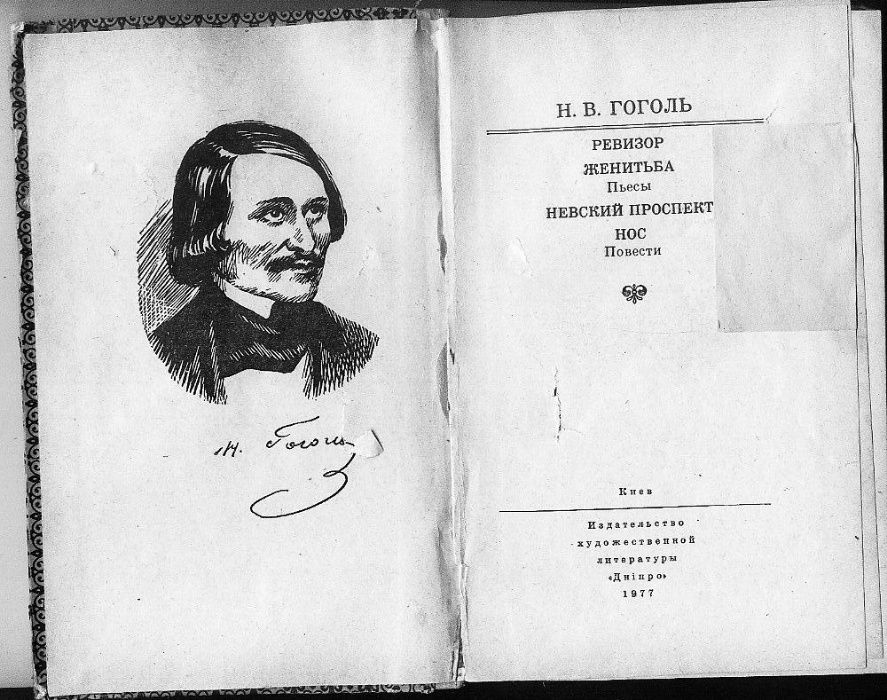 Н. Гоголь
Н. В. ГОГОЛЬ
РЕВИЗОР
ЖЕНИТЬБА
Пьесы
НЕВСКИЙ ПРОСПЕКТ
НОС
Повести
Киев
Издательство
художественной
литературы
«Дніпро»
1977